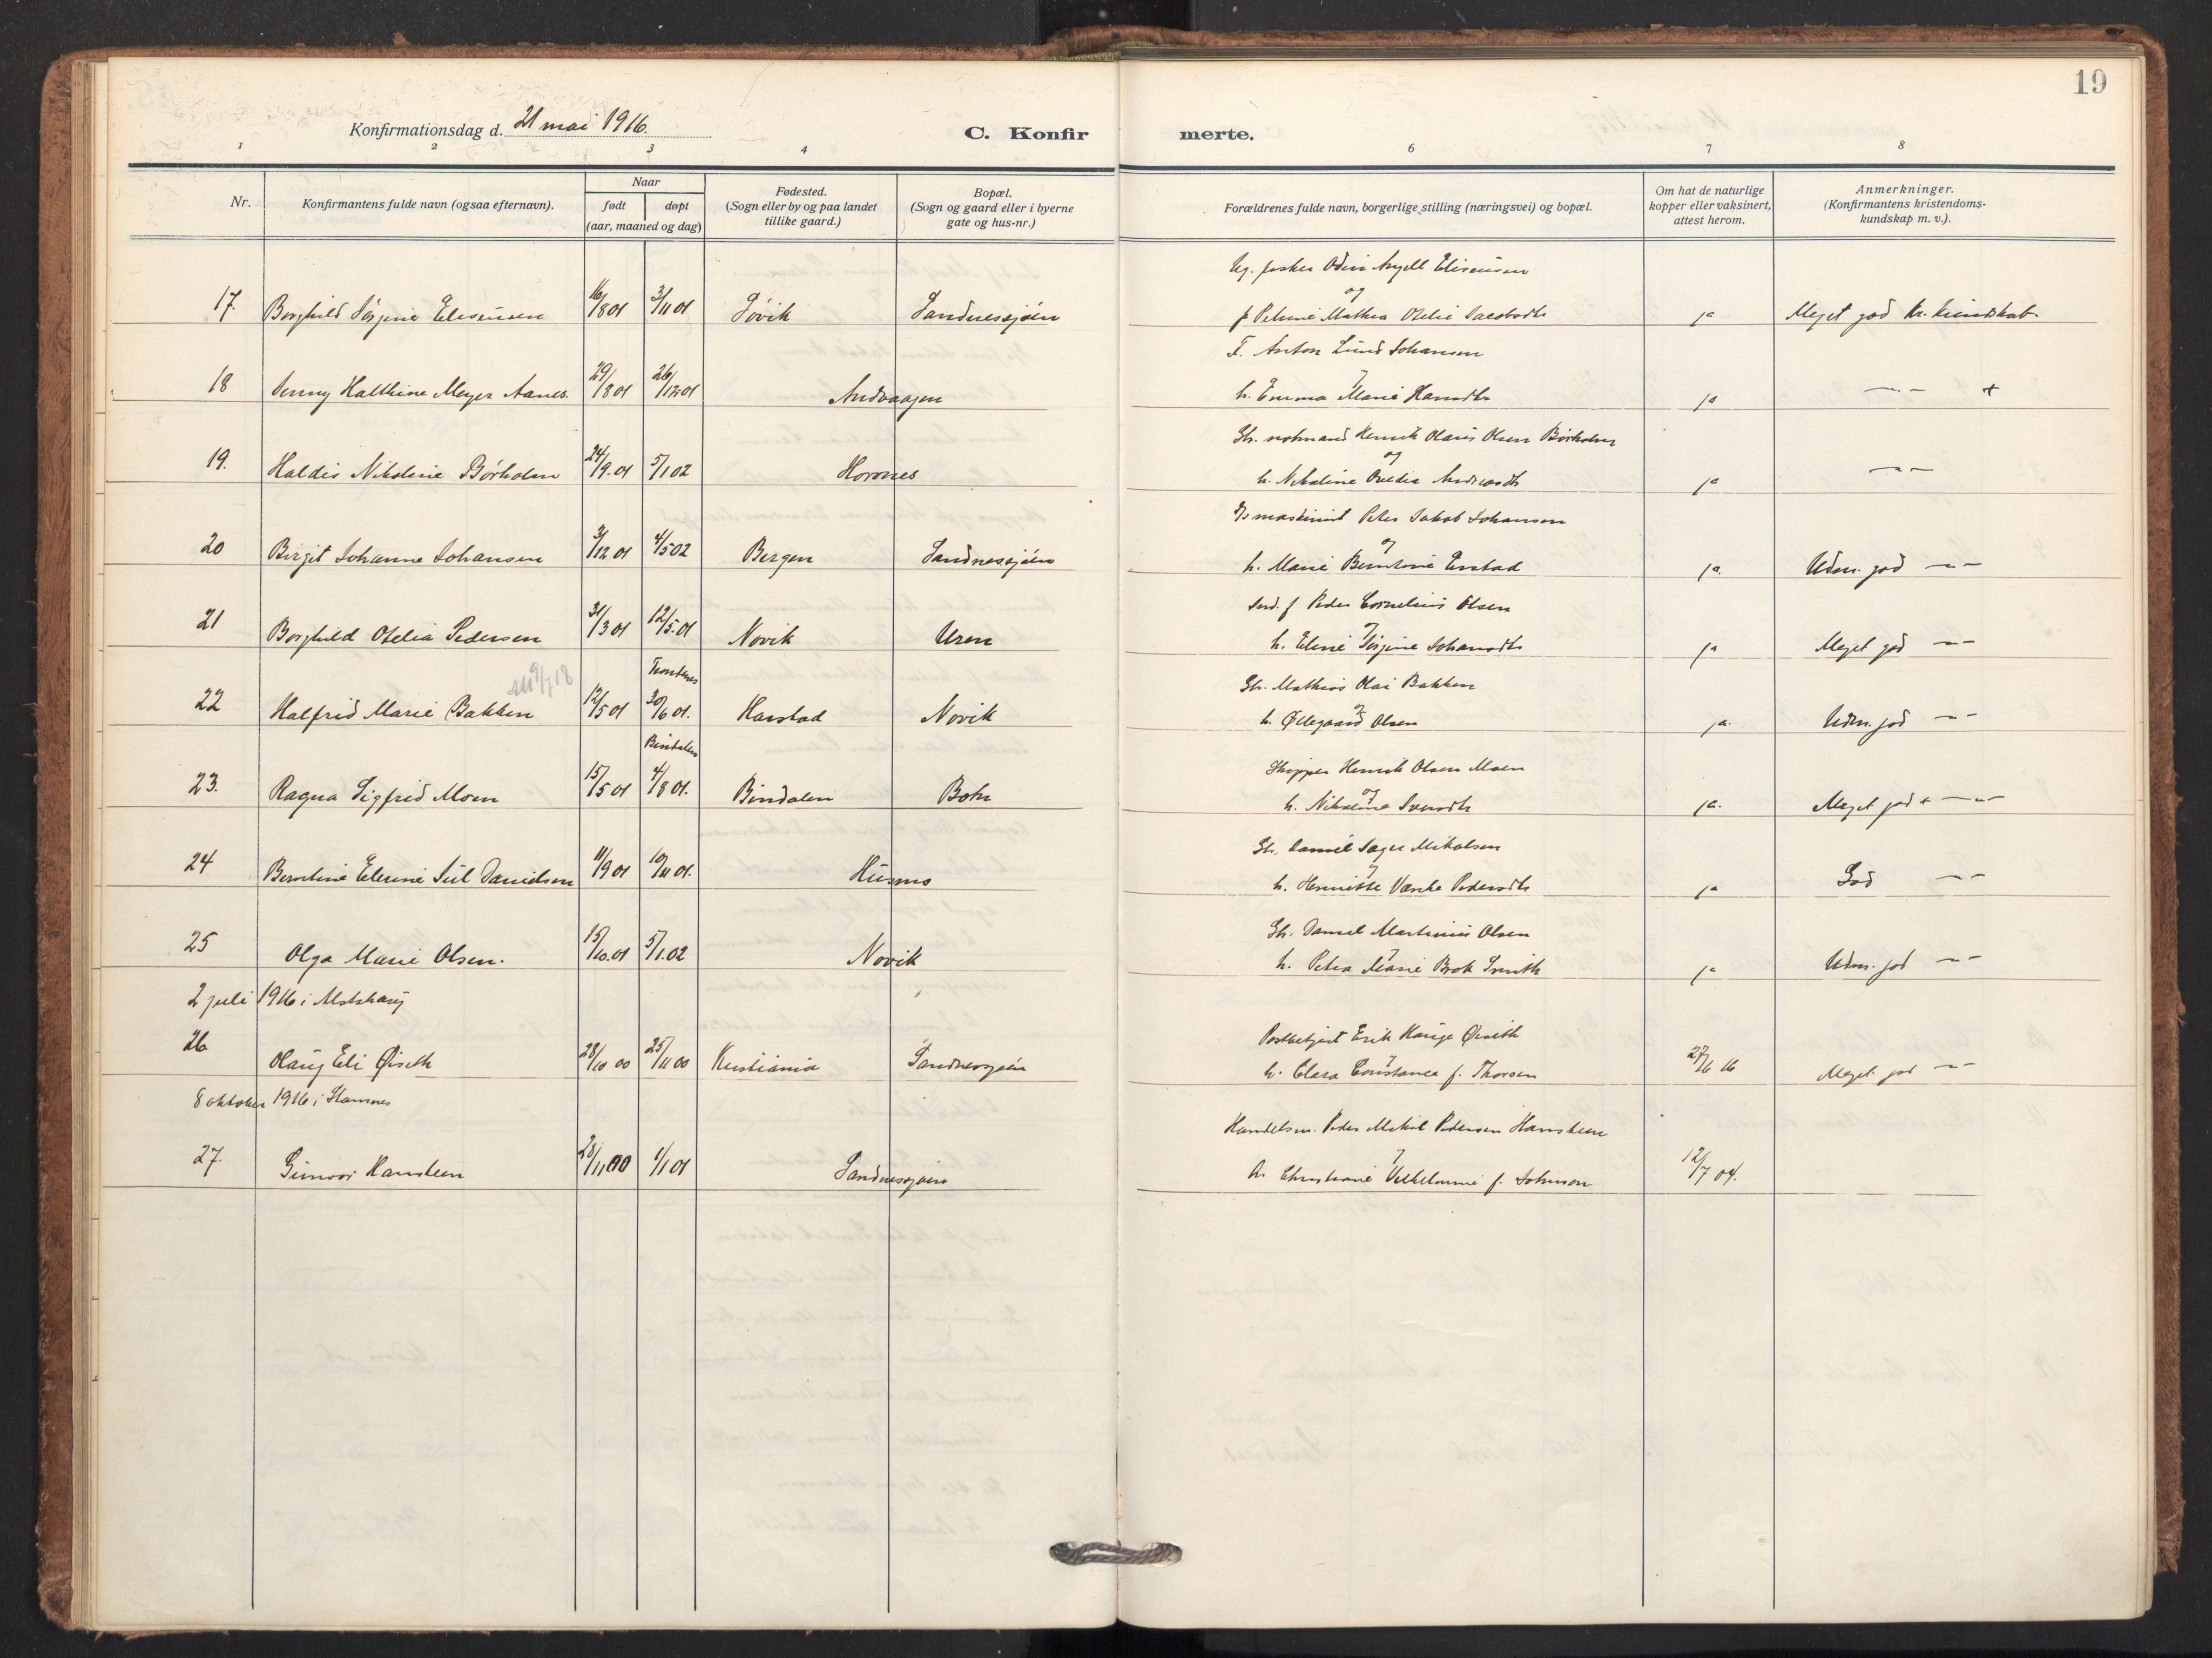 19
Konfirmationsdag d. 21 mai 1916.
C. Konfir merte.
1 2 3 4 6 7 8
Nr.
Konfirmantens fulde navn (ogsaa efternavn).
Naar
født døpt
(aar, maaned og dag)
Fødested.
(Sogn eller by og paa landet
tillike gaard.)
Bopæl.
(Sogn og gaard eller i byerne
gate og hus-nr.)
Forældrenes fulde navn, borgerlige stilling (næringsvei) og bopæl.
Om hat de naturlige
kopper eller vaksinert,
attest herom.
Anmerkninger.
(Konfirmantens kristendoms-
kundskap m. v.).
Ug. fisker Odin Elisæusen
og
17. Borghild Jørgine Eliseusen 16/8 01 3/11 01 Søvik Sandnessjøen p. Mathea Otelie Jacobsdtr ja Meget god kr. kundskab.
F. Anton Lund Johansen
18 Jenny Halthine Meyer Aanes. 29/8 01 26/12 01 Andvaagen h. Emma Marie Hansdtr ja — " — +
Gbr. notmand Henrik Olaus Olsen Børholm
og
19. Haldis Nikoline Børholm 24/9.01 5/1 02 Hornes h. Nikoline Andreasdtr ja — " —
D/s maskinist Peter Jakob Johansen
og
20 Birgit Johanne Johansen 3/12 01 4/5 02 Bergen Sandnessjøen h. Marie Berntine ja. Udm. god — " —
Ind. f Peder Cornelius Olsen
21 Borghild Otelia Pedersen 31/3 01 12/5.01 Novik Uren h. Eline Jørgine Johansdtr ja Meget god — " —
9/7 18 Trondenes Gbr. Mathias Olai Bakken
22 Halfrid Marie Bakken 12/5 01 30/6 01. Harstad Novik h. Øllegaard Olsen ja. Udm. god — " —
Bindalen Skipper Henrik Olsen Moen
og
23. Ragna Sigfrid Moen 15/5 01 4/8 01. Bindalen Botn h. Nikoline ja. Meget god + — " —
Gbr. Daniel Mikalsen
24 Berntine Elerine Danielsen 11/9 01 10/11 01. Husmo h. Henriette Pedersdtr ja God — " —
Gbr. Daniel Martinius Olsen
25 Olga Marie Olsen. 15/10.01 5/1.02 Novik h. Petra Marie Brok Smith ja Udm. god — " —
2 juli 1916 i Alstahaug
Postbetjent Erik Hauge Øiseth
26 Olaug Eli Øiseth 28/10 00 25/11 00 Kristiania Sandnessjøen h. Clara Constance f. Thorsen 27/6 16 Meget god — " —
8 oktober 1916 i Stamnes
Handelsm. Peder Mikal Pedersen Hansteen
27. Gunvor Hansteen 28/11 00 1/1 01 Sandnessjøen h. Christiane Vilhelmine f. Johnson 12/7 04. — —